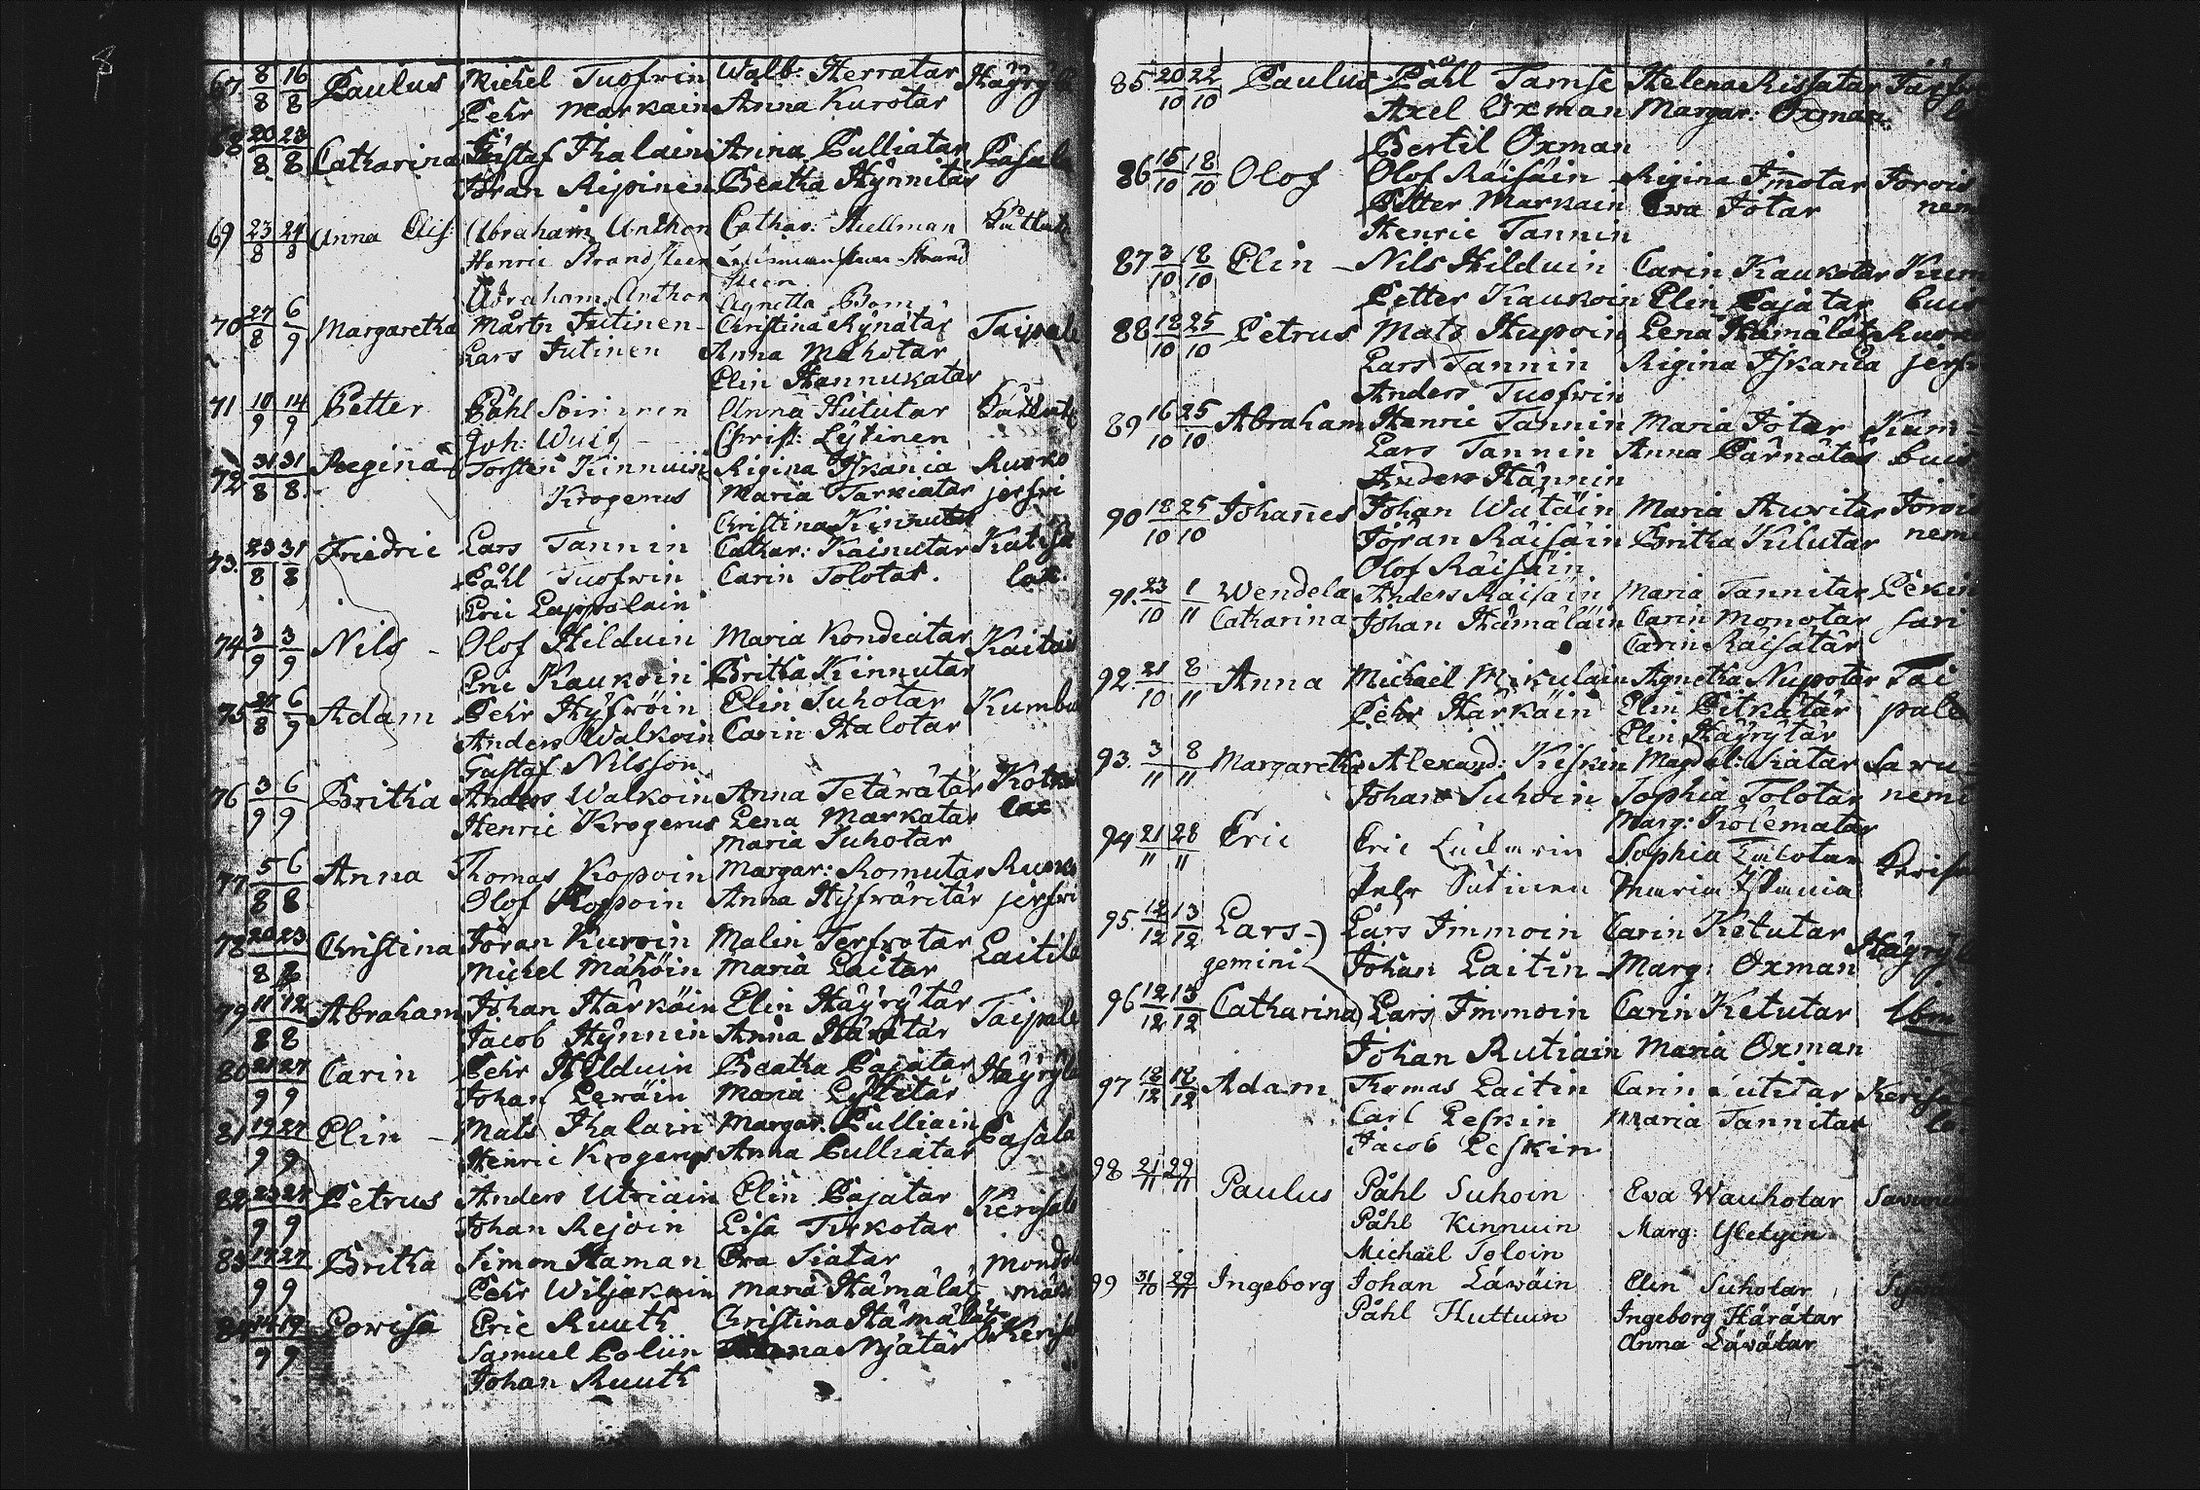 8
67 8/8 16/8 Paulus Michel Tuofwin Walb: Herratar Häyry
Pehr Markain Anna Kurotar
68 20/8 23/8 Catharina Gustaf Ihalain Anna Pulliatar Pasala
Jöran Ripinen Beatha Hÿnnitär
69 23/8 24/8 Anna Elis: Abraham Anthon Cathar: Hellman
Henric Strandsteen
Steen
Abraham Anthon Agnetta Bom
70 27/8 6/9 Margaretha Mårtn Jutinen Christina Rÿnätar Taipale
Lars Jutinen Anna Mähotar
Elin Hannukatar
71 10/9 14/9 Petter Påhl Soininen Anna Hututar
Joh: Christ: Lÿtinen
72 31/8 31/8 Regina Torsten Kinnuin Rigina Iskania Rusko
Krogerus Maria Tarkiatar jerfwi
Christina Kinnutar
73. 23/8 31/8 Friedric Lars Tannin Cathar: Kainutar Katisa
Påhl Tuofwin Carin Tolotar. lax.
Eric Lappolain
74 3/9 3/9 Nils - Olof Hilduin Maria Kondiatar Kaitai
Eric Kaukoin Britha Kinnutar
75 27/8 6/9 Adam Pehr Hÿfwöin Elin Suhotar Kumbu
Anders Walkoin Carin Halotar
Gustaf Nilsson
76 3/9 6/9 Britha Anders Walkoin Anna Tetärätär Kotka
Henric Krogerus Lena Markatar lax
Maria Suhotar
77 5/8 6/8 Anna Thomas Kopoin Margar: Romutar Rusko
Olof Kopoin Anna Hÿfwäritär jerfwi
78 20/8 23/8 Christina Jöran Kuroin Malin Terfwotar Laitila
Michel Mähöin Maria Laitar
79 11/8 12/8 Abraham Johan Härkäin Elin Häyrÿtär Taipale
Jacob Hÿnnin Anna Härätär
80 21/9 27/9 Carin Pehr Hilduin Beatha Pajatar Häyrÿla
Johan Lewäin Maria
81 19/9 27/9 Elin - Mats Ihalain Margar: Pulliain Pasala
Henric Krogerus Anna Pulliatar
82 23/9 27/9 Petrus Anders Utriain Elin Pajatar Kerisal
Johan Rejoin Lisa Tirkotar
83 19/9 27/9 Britha Simon Haman Ewa Siatar
Pehr Wiljakain Maria Hämälät
84 14/9 19/9 Lowisa Eric Ruuth Christina Hämälät Kerisal
Samuel Poliin Nÿätär
Johan Ruuth
85 20/10 22/10 Paulus Påhl Tamse Helena Rissatar
Axel Oxman Margar: Oxman
Bertil Oxman
86 15/10 18/10 Olof Olof Räisäin Rigina Im̄otar Jorois
Petter Markain Ewa Jotar nem
Henric Tannin
87 3/10 18/10 Elin - Nils Hilduin Carin Kaukotar Kum
Petter Kaukoin Elin Pajatar buis
88 18/10 25/10 Petrus Mats Hapoin Lena Hämälät Rusko
Lars Tannin Rigina Iskania jerf
Anders Tuofwin
89 16/10 25/10 Abraham Henric Tannin Maria Jotar Kum
Lars Tannin Anna Pärnätär buis
Anders Hännin
90 18/10 25/10 Johan̄es Johan Wätäin Maria Auvitar Jorois
Jöran Räisäin Britha Kilutar nem
Olof Räisäin
91. 23/10 1/11 Wendela Anders Räisäin Maria Tannitar Pekin
Catharina Johan Hämäläin Carin Monotar sari
Carin Räisätär
92. 21/10 8/11 Anna Michael Mikulain Agnetha Nupotar Tai
Pehr Härkäin Elin Pitkätär pale
Elin Häyrÿtär
93. 3/11 8/11 Margaretha Alexand: Kiskin Magdal: Siatar Sawu
Johan Suhoin Sophia Tolotar nemi
Marg: Kolematar
94 21/11 28/11 Eric Eric Sophia
Pehr Sutinen Maria Iskania
95. 12/12 13/12 Lars Lars Immoin Carin Ketutar Häyrÿl
gemini Johan Laitin Marg: Oxman
96 12/12 13/12 Catharina Lars Immoin Carin Ketutar Ibm
Johan Rutiain Maria Oxman
97 18/12 18/12 Adam Thomas Laitin Carin Kerisa
Carl Leskin Maria Tannitar la
Jacob Leskin
98 21/11 29/11 Paulus Påhl Suhoin Ewa Wauhotar
Påhl Kinnuin Marg:
Michael Toloin
99 31/10 29/11 Ingeborg Johan Läwäin Elin Suhotar
Påhl Huttuin Ingeborg Härätar
Anna Läwätar